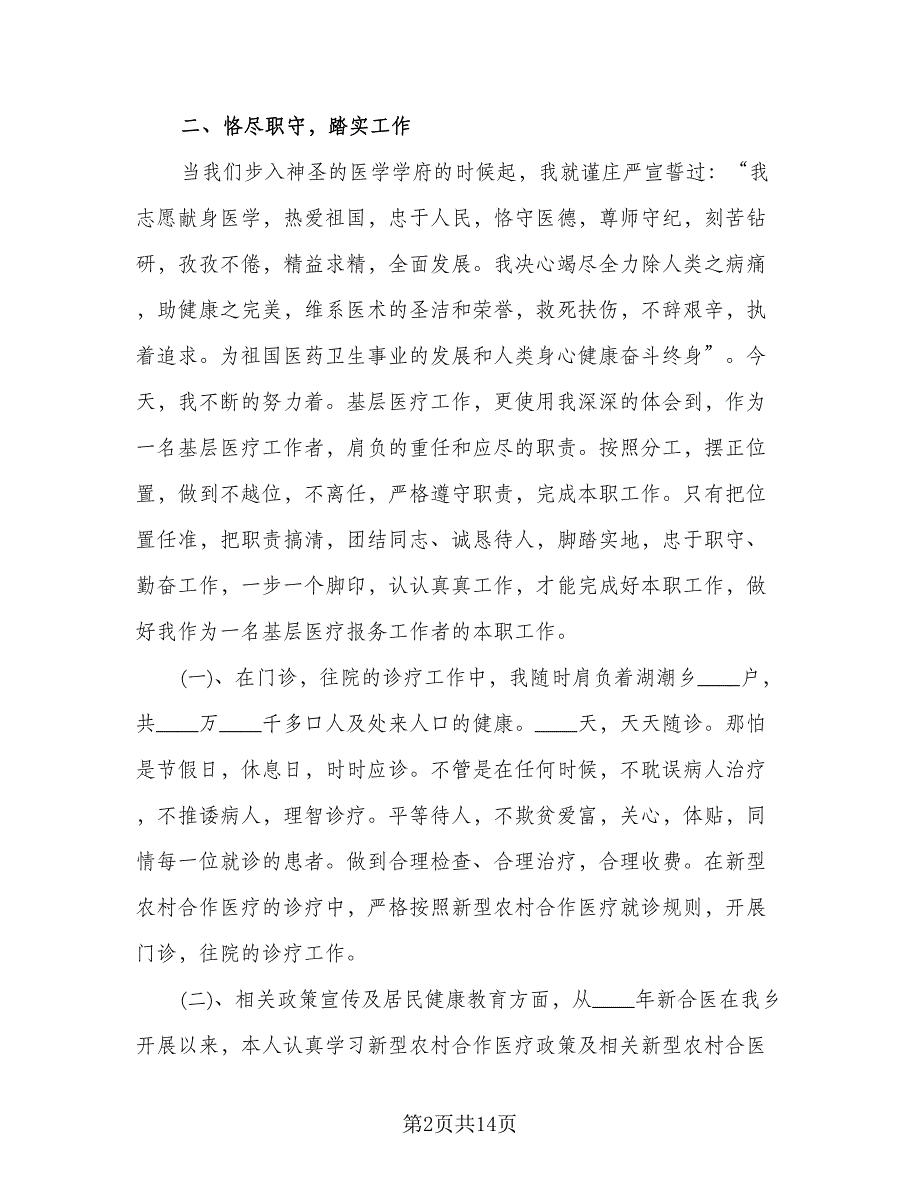 二、恪尽职守，踏实工作
当我们步入神圣的医学学府的时候起，我就谨庄严宣誓过：“我
志愿献身医学，热爱祖国，忠于人民，恪守医德，尊师守纪，刻苦钻
研，孜孜不倦，精益求精，全面发展。我决心竭尽全力除人类之病痛
，助健康之完美，维系医术的圣洁和荣誉，救死扶伤，不辞艰辛，执
着追求。为祖国医药卫生事业的发展和人类身心健康奋斗终身”。今
天，我不断的努力着。基层医疗工作，更使用我深深的体会到，作为
一名基层医疗工作者，肩负的重任和应尽的职责。按照分工，摆正位
置，做到不越位，不离任，严格遵守职责，完成本职工作。只有把位
置任准，把职责搞清，团结同志、诚恳待人，脚踏实地，忠于职守、
勤奋工作，一步一个脚印，认认真真工作，才能完成好本职工作，做
好我作为一名基层医疗报务工作者的本职工作。
(一)、在门诊，往院的诊疗工作中，我随时肩负着湖潮乡____户，
共____万____千多口人及处来人口的健康。____天，天天随诊。那怕
是节假日，休息日，时时应诊。不管是在任何时候，不耽误病人治疗
，不推诿病人，理智诊疗。平等待人，不欺贫爱富，关心，体贴，同
情每一位就诊的患者。做到合理检查、合理治疗，合理收费。在新型
农村合作医疗的诊疗中，严格按照新型农村合作医疗就诊规则，开展
门诊，往院的诊疗工作。
(二)、相关政策宣传及居民健康教育方面，从____年新合医在我乡
开展以来，本人认真学习新型农村合作医疗政策及相关新型农村合医
第2页共14页